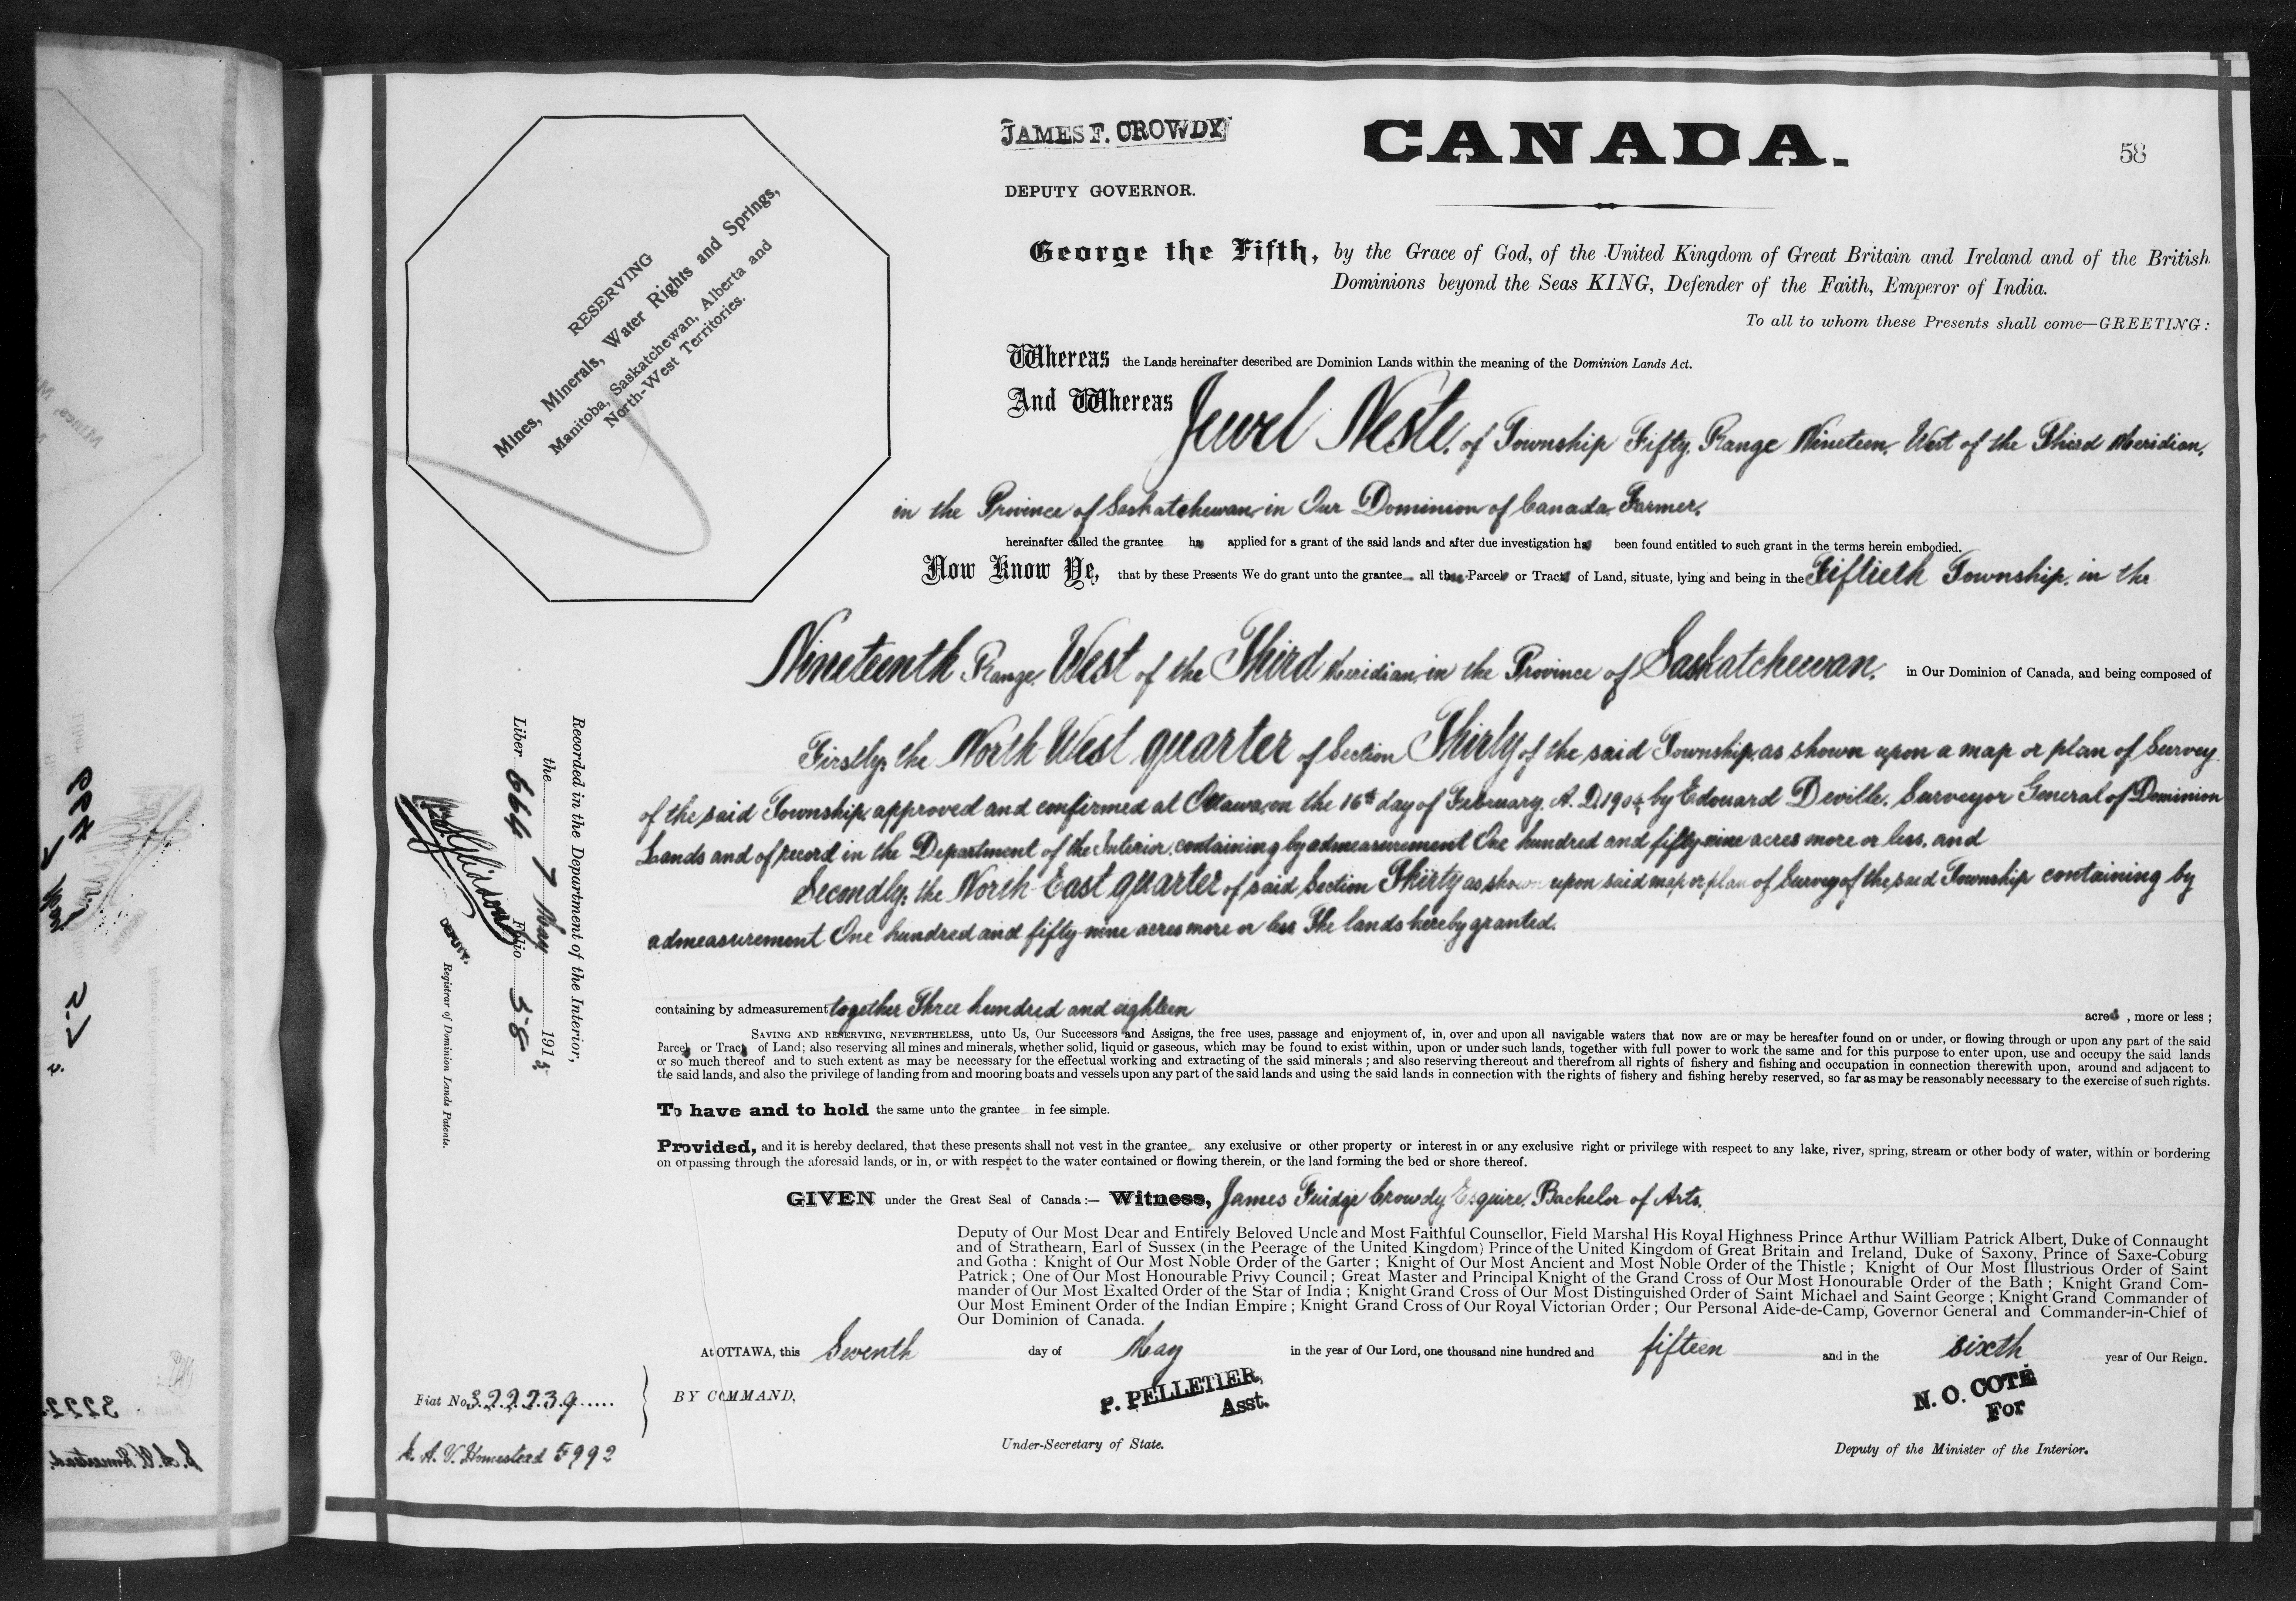 JAMES F. CROWDY
DEPUTY GOVERNOR.
CANADA.
58
RESERVING
Mines, Minerals, Water Rights and Springs,
Manitoba, Saskatchewan, Alberta and
North-West Territories.
George the Fifth, by the Grace of God, of the United Kingdom of Great Britain and Ireland and of the British
Dominions beyond the Seas KING, Defender of the Faith, Emperor of India.
To all to whom these Presents shall come—GREETING:
Whereas the Lands hereinafter described are Dominion Lands within the meaning of the Dominion Lands Act.
And Whereas Jewel Neste, of Township Fifty, Range Nineteen, West of the Third Meridian,
in the Province of Saskatchewan in Our Dominion of Canada, Farmer,
hereinafter called the grantee ha applied for a grant of the said lands and after due investigation ha been found entitled to such grant in the terms herein embodied.
Now Know Ye, that by these Presents We do grant unto the grantee all th Parcel or Tract of Land, situate, lying and being in the Fiftieth Township, in the
Nineteenth Range, West of the Third Meridian, in the Province of Saskatchewan, in Our Dominion of Canada, and being composed of
Firstly, the North West quarter of Section Thirty of the said Township, as shown upon a map or plan of Survey
of the said Township, approved and confirmed at Ottawa, on the 16th day of February, A. D. 1904, by Edouard Deville, Surveyor General of Dominion
Lands and of record in the Department of the Interior, containing by admeasurement One hundred and fifty-nine acres more or less, and
Secondly, the North East quarter of said Section Thirty as shown upon said map or plan of Survey of the said Township containing by
admeasurement One hundred and fifty-nine acres more or less The lands hereby granted.
containing by admeasurement together Three hundred and eighteen acres, more or less;
SAVING AND RESERVING, NEVERTHELESS, unto Us, Our Successors and Assigns, the free uses, passage and enjoyment of, in, over and upon all navigable waters that now are or may be hereafter found on or under, or flowing through or upon any part of the said
Parcel or Tract of Land; also reserving all mines and minerals, whether solid, liquid or gaseous, which may be found to exist within, upon or under such lands, together with full power to work the same and for this purpose to enter upon, use and occupy the said lands
or so much thereof and to such extent as may be necessary for the effectual working and extracting of the said minerals; and also reserving thereout and therefrom all rights of fishery and fishing and occupation in connection therewith upon, around and adjacent to
the said lands, and also the privilege of landing from and mooring boats and vessels upon any part of the said lands and using the said lands in connection with the rights of fishery and fishing hereby reserved, so far as may be reasonably necessary to the exercise of such rights.
To have and to hold the same unto the grantee in fee simple.
Provided, and it is hereby declared, that these presents shall not vest in the grantee any exclusive or other property or interest in or any exclusive right or privilege with respect to any lake, river, spring, stream or other body of water, within or bordering
on or passing through the aforesaid lands, or in, or with respect to the water contained or flowing therein, or the land forming the bed or shore thereof.
GIVEN under the Great Seal of Canada:— Witness, James Fuidge Crowdy Esquire, Bachelor of Arts,
Deputy of Our Most Dear and Entirely Beloved Uncle and Most Faithful Counsellor, Field Marshal His Royal Highness Prince Arthur William Patrick Albert, Duke of Connaught
and of Strathearn, Earl of Sussex (in the Peerage of the United Kingdom) Prince of the United Kingdom of Great Britain and Ireland, Duke of Saxony, Prince of Saxe-Coburg
and Gotha: Knight of Our Most Noble Order of the Garter; Knight of Our Most Ancient and Most Noble Order of the Thistle; Knight of Our Most Illustrious Order of Saint
Patrick; One of Our Most Honourable Privy Council; Great Master and Principal Knight of the Grand Cross of Our Most Honourable Order of the Bath; Knight Grand Com-
mander of Our Most Exalted Order of the Star of India; Knight Grand Cross of Our Most Distinguished Order of Saint Michael and Saint George; Knight Grand Commander of
Our Most Eminent Order of the Indian Empire; Knight Grand Cross of Our Royal Victorian Order; Our Personal Aide-de-Camp, Governor General and Commander-in-Chief of
Our Dominion of Canada.
At OTTAWA, this Seventh day of May in the year of Our Lord, one thousand nine hundred and fifteen and in the sixth year of Our Reign.
BY COMMAND,
P. PELLETIER,
Asst.
Under-Secretary of State.
N. O. COTÉ
For
Deputy of the Minister of the Interior.
Recorded in the Department of the Interior,
the 7 May 1915,
Liber 664 Folio 58
DEPUTY.
Registrar of Dominion Lands Patents.
Fiat No. 322239
S. A. V. Homestead 5992